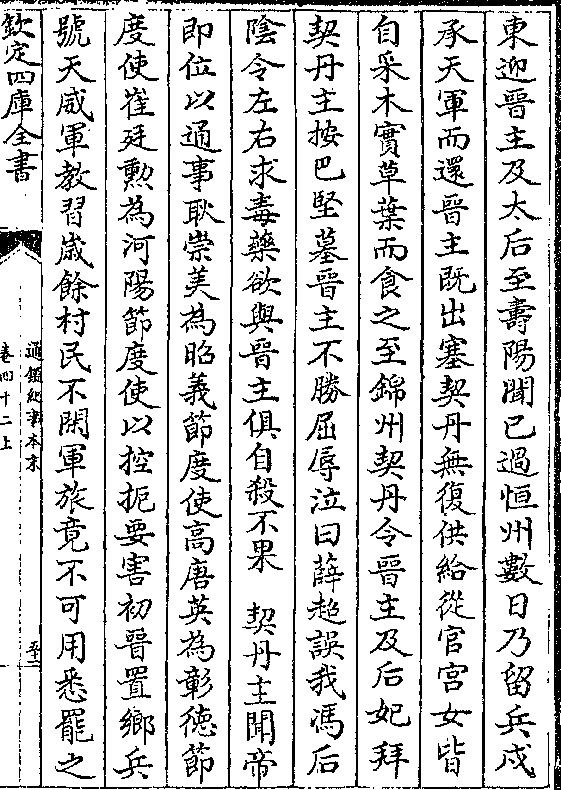 東迎晉主及太后至壽陽聞已過恒州數日乃留兵戍
承天軍而還晉主既出塞契丹無復供給從官宮女皆
自采木實草葉而食之至錦州契丹令晉主及后妃拜
契丹主按巴堅墓晉主不勝屈辱泣曰薛超誤我馮后
陰令左右求毒藥欲與晉主俱自殺不果　契丹主聞帝
即位以通事耿崇美為昭義節度使高唐英為彰德節
度使崔廷勲為河陽節度使以控扼要害初晉置鄉兵
號天威軍教習歲餘村民不閑軍旅竟不可用悉罷之
欽定四庫全書
通鑑紀事本末
卷四十二上